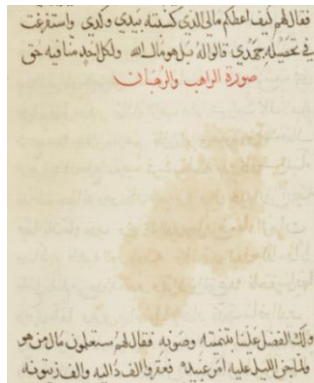 فقال لهم كيف اعطيكم مالي الذي كسبته بيدي وكدي واستفرغت
في تحصيله جهدي قالوا له بل هو مال الله ولكل احد منا فيه حق
صورة الراهب والرهبان
ولك الفضل علينا بتنميته وصونه فقال لهم ستعلمون مال من هو
ولما جن الليل عليه امر عبيده فعقروا الف دالية والف زيتونة